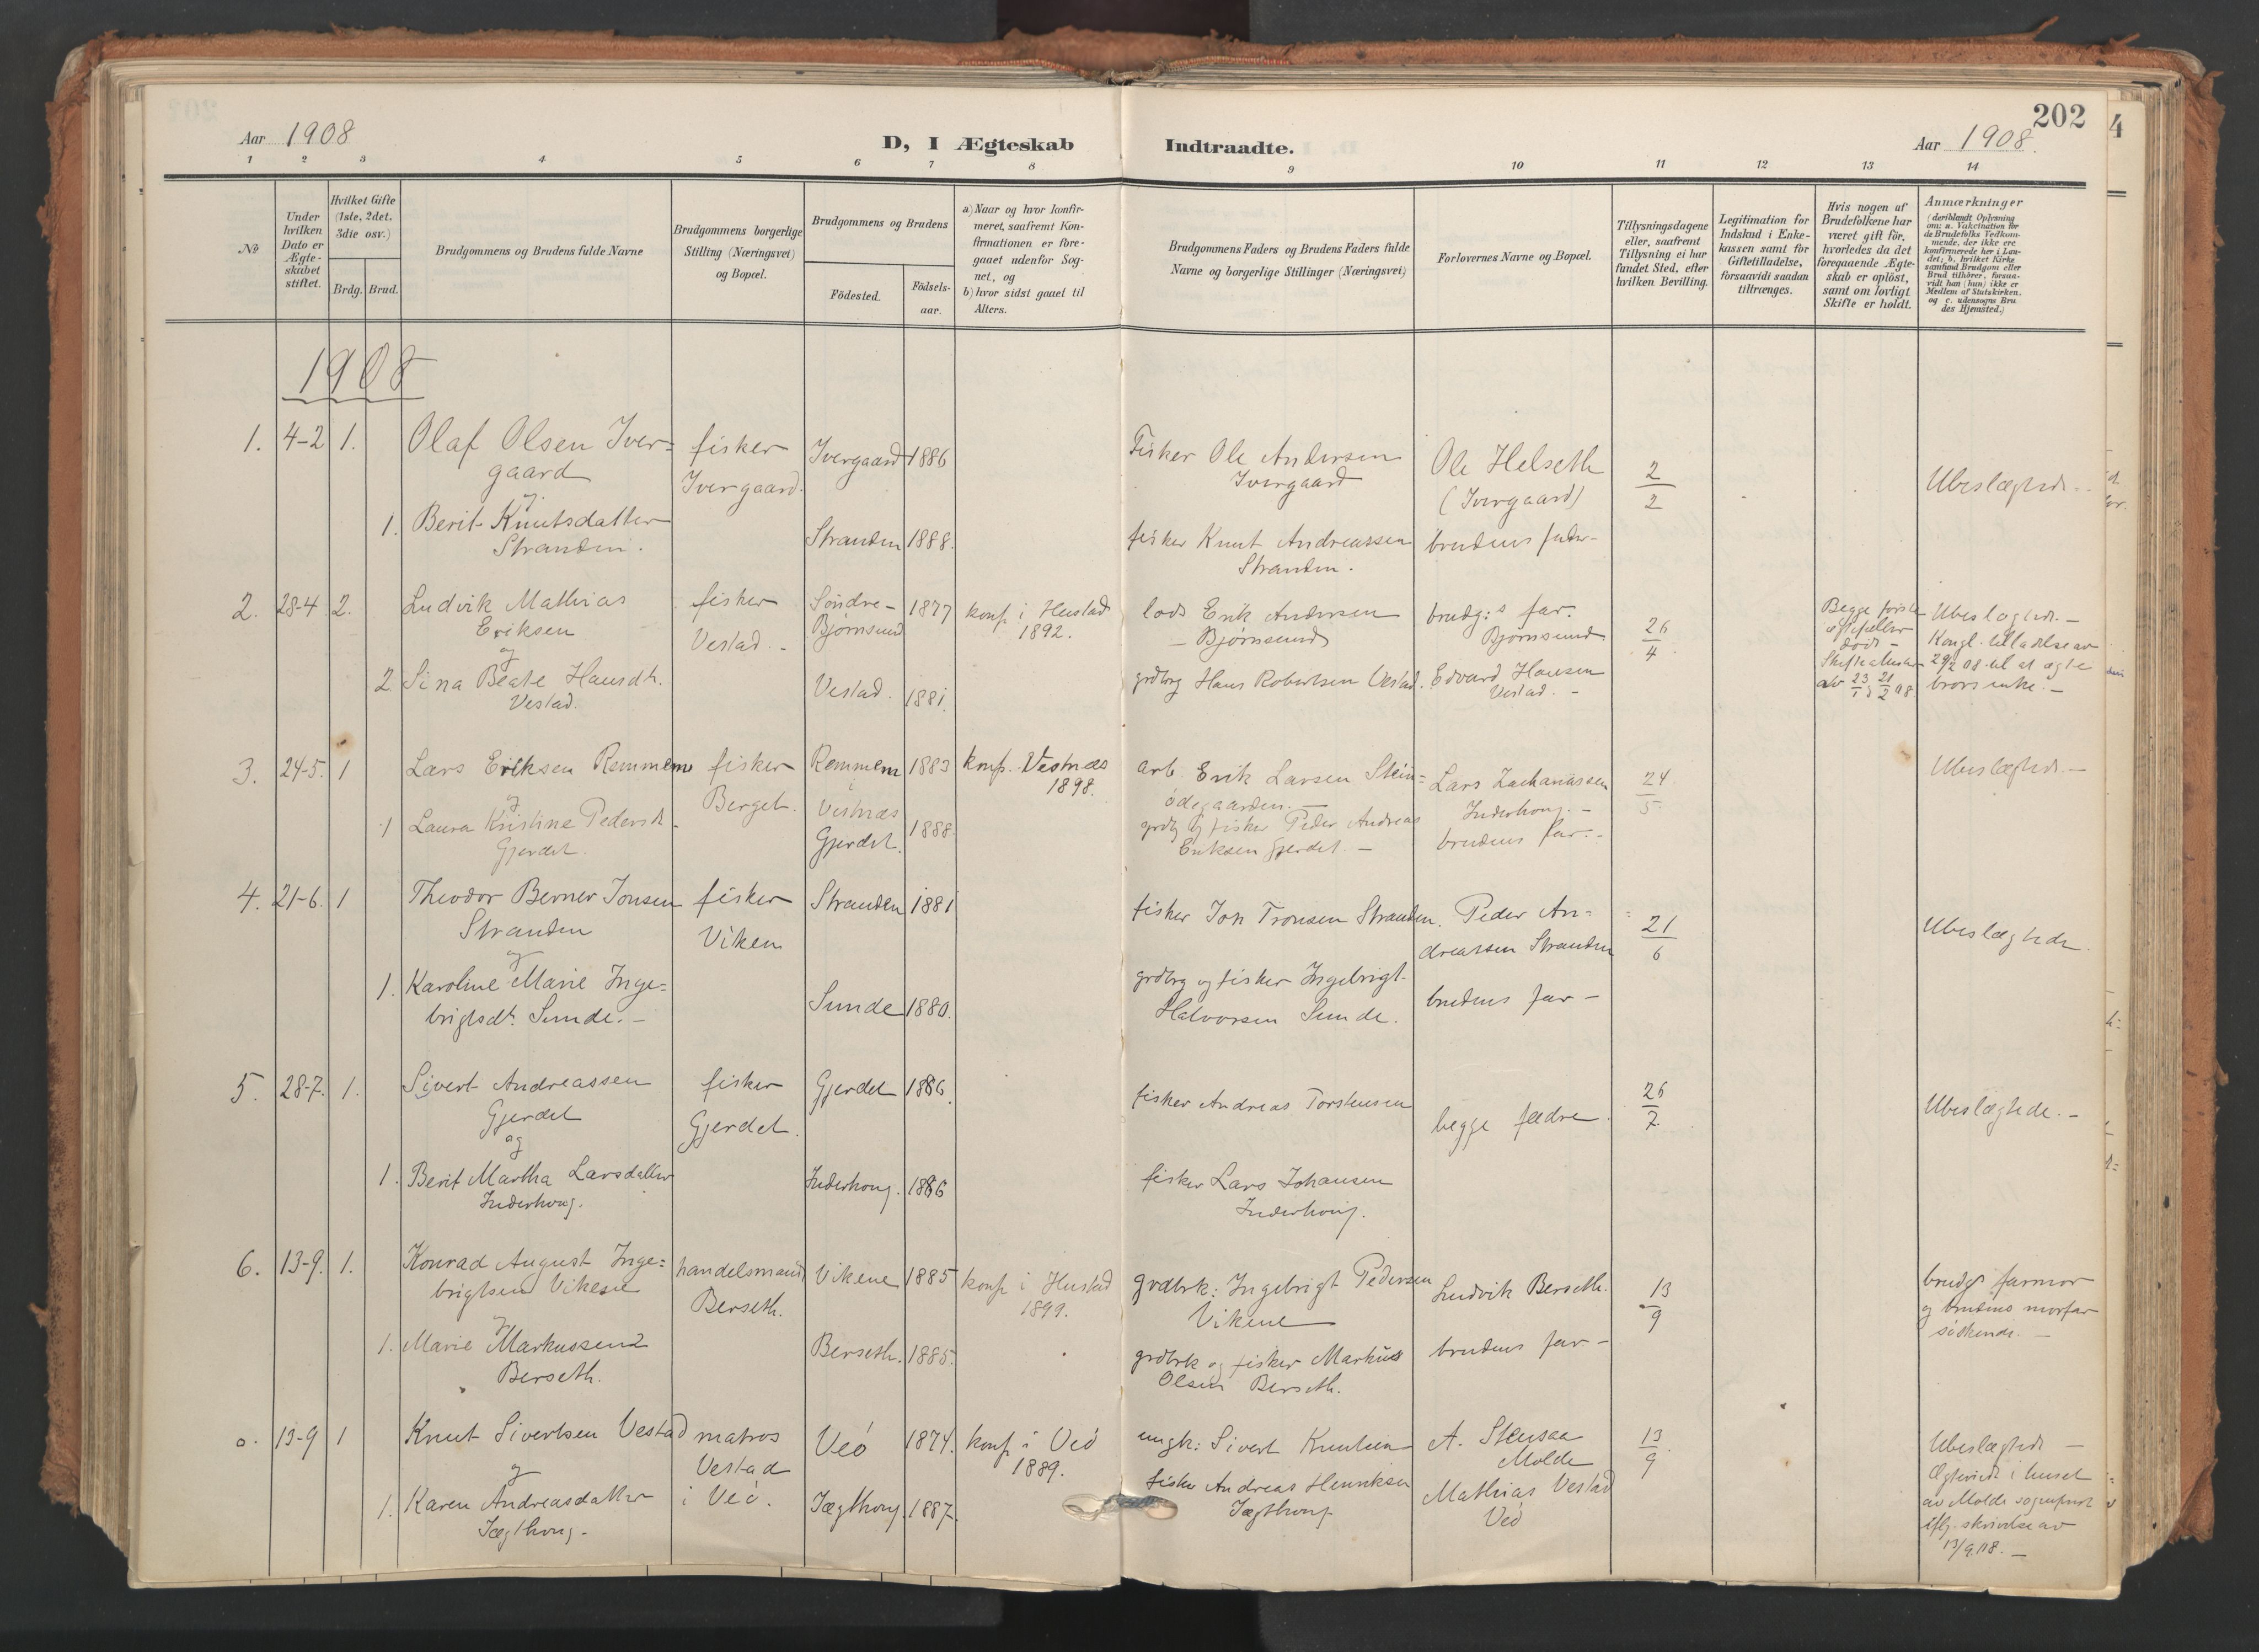 202
Aar 1908
D, I Ægteskab
Indtraadte.
Aar 1908.
1 2 3 4 5 6 7 8 9 10 11 12 13 14
No
Under
hvilken
Dato er
Ægte-
skabet
stiftet.
Hvilket Gifte
(1ste, 2det,
3die osv.)
Brdg. Brud.
Brudgommens og Brudens fulde Navne
Brudgommens borgerlige
Stilling (Næringsvei)
og Bopæl.
Brudgommens og Brudens
Födested.
Födsels-
aar.
a) Naar og hvor konfir-
meret, saafremt Kon-
firmationen er fore-
gaaet udenfor Sog-
net, og
b) hvor sidst gaaet til
Alters.
Brudgommens Faders og Brudens Faders fulde
Navne og borgerlige Stillinger (Næringsvei)
Forlovernes Navne og Bopæl.
Tillysningsdagene
eller, saafremt
Tillysning ei har
fundet Sted, efter
hvilken Bevilling.
Legitimation for
Indskud i Enke-
kassen samt for
Giftetilladelse,
forsaavidt saadan
tiltrænges.
Hvis nogen af
Brudefolkene har
været gift för,
hvorledes da det
foregaaende Ægte-
skab er oplöst,
samt om lovligt
Skifte er holdt.
Anmærkninger
(deriblandt Oplysning
om: a. Vakcination for
de Brudefolks Vedkom-
mende, der ikke ere
konfirmerede her i Lan-
det; b. hvilket Kirke
samfund Brudgom eller
Brud tilhörer, forsaa-
vidt han (hun) ikke er
Medlem af Statskirken,
og c. udensogns Bru
des Hjemsted.)
1908
1. 4-2 1. Olaf Olsen Iver=
gaard
og
1. Berit Knutsdatter
Stranden.
fisker
Ivergaard.
Ivergaard 1886
Stranden 1888.
Fisker Ole Andersen
Ivergaard
fisker Knut Andreassen
Stranden.
Ole Helseth
(Ivergaard)
brudens fader
2
2
Ubeslægtede.
2. 28-4 2. Ludvik Mathias
Eriksen
og
2 Sina Beate Hansdt.
Vestad.
fisker
Vestad.
Söndre-
Bjørnsund
1877
Vestad. 1881.
konf. i Hustad
1892.
lods Erik Andersen
Bjørnsund
grdbrg Hans Robertsen Vestad.
brudg:s far.
Bjørnsund
Edvard Hansen
Vestad.
26
4
Begge förste
ægtefæller
död
av 23/1 & 21/2 08
Ubeslægtede.
Kongl. tilladelse av
29/2 08 til at ægte
brors enke.
3. 24-5. 1 Lars Eriksen Remmem
og
1 Laura Kristine Pedersdt.
Gjerdet.
fisker
Berget.
Remmem
i
Vestnæs
1883
Gjerdet. 1888.
konf. Vestnæs
1898.
arb. Erik Larsen Stein=
ödegaarden.
grdbrg og fisker Peder Andreas
Eriksen Gjerdet.
Lars Zachariassen
Inderhoug.
brudens far.
24
5.
Ubeslægtede.
4. 21-6. 1 Theodor Berner Jonsen
Stranden
og
1. Karoline Marie Inge=
brigtsdt. Sunde.
fisker
Viken
Stranden 1881
Sunde 1880.
fisker Jon Tronsen Stranden.
grdbrg og fisker Ingebrigt
Halvorsen Sunde.
Peder An=
dreassen Stranden
brudens far
21
6
Ubeslægtede.
5. 28-7. 1. Sivert Andreassen
Gjerdet
og
1. Berit Martha Larsdatter
Inderhoug.
fisker
Gjerdet.
Gjerdet 1886.
Inderhoug. 1886
fisker Andreas Torstensen
fisker Lars Johansen
Inderhoug.
begge fædre.
26
7.
Ubeslægtede.
6. 13-9. 1. Konrad August Inge=
brigtsen Vikene
og
1. Marie Markussen
Berseth.
handelsmand
Berseth.
Vikene 1885
Berseth. 1885.
konf. i Hustad
1899.
grdbrk: Ingebrigt Pedersen
Vikene
grdbrk og fisker Markus
Olsen Berseth.
Ludvik Berseth.
brudens far
13
9
brudgs farmor
og brudens morfar
södskende.
o. 13-9 1 Knut Sivertsen Vestad
og
1. Karen Andreasdatter
Jægthoug.
matros
Vestad
i Veö.
Veö 1874.
Jægthoug. 1887.
konf. i Veö
1889.
ungk: Sivert Knutsen
fisker Andreas Henriksen
Jægthoug
A. Stensaa
Molde
Mathias Vestad
Veö
13
9
Ubeslægtede
Ægteviede i huset
av Molde sogneprest
iflg. skrivelse av
13/9 08.